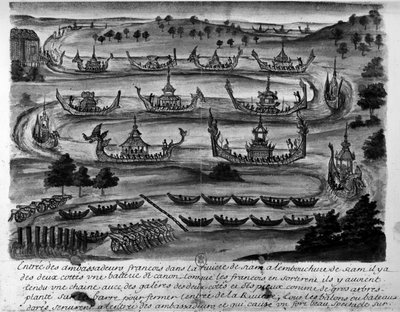 Entrée des ambassadeurs francois dans la riviere de siam a lembouchure de siam il y a
des deux cottes vne batterie de canon. comme les francois en sortirent ils y auoient
tendu vne chaine auec des galeres des deux cottes et des pieux comme de gros arbres
planté sur la barre pour fermer lentrée de la Riuiere, tous les balons ou bateaux
dorés venoient a des ambassadeurs et qui cause vn fort beau spectacle sur